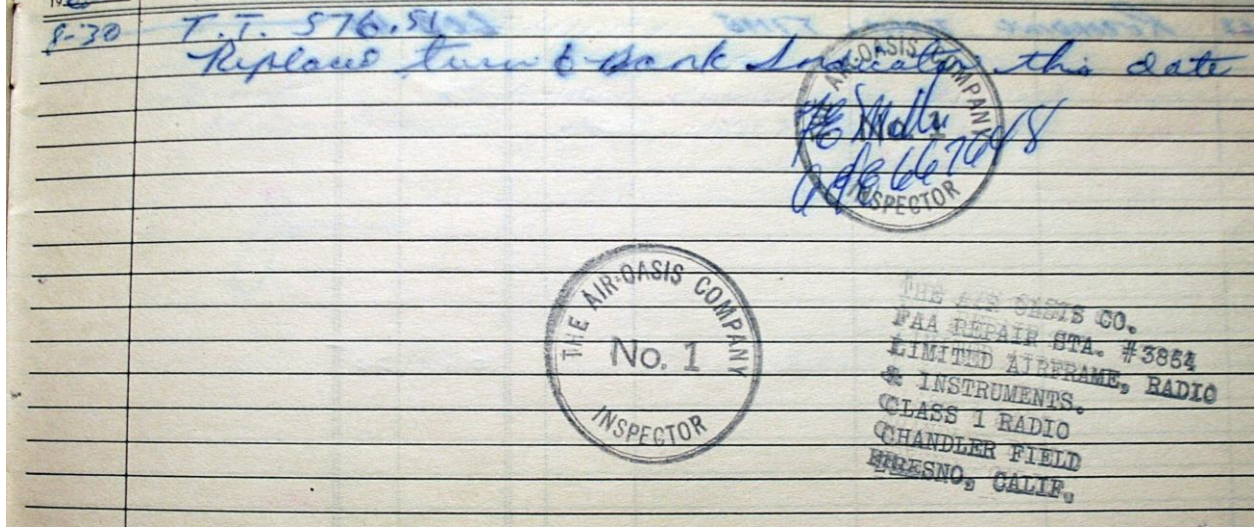 8-30 T.T. 576.51
Replaced turn & Bank Indicator this date
THE AIR-OASIS COMPANY
No. 1
INSPECTOR
667648
THE AIR-OASIS COMPANY
No. 1
INSPECTOR
THE AIR OASIS CO.
FAA REPAIR STA. #3864
LIMITED AIRFRAME, RADIO
& INSTRUMENTS.
CLASS 1 RADIO
CHANDLER FIELD
FRESNO, CALIF.